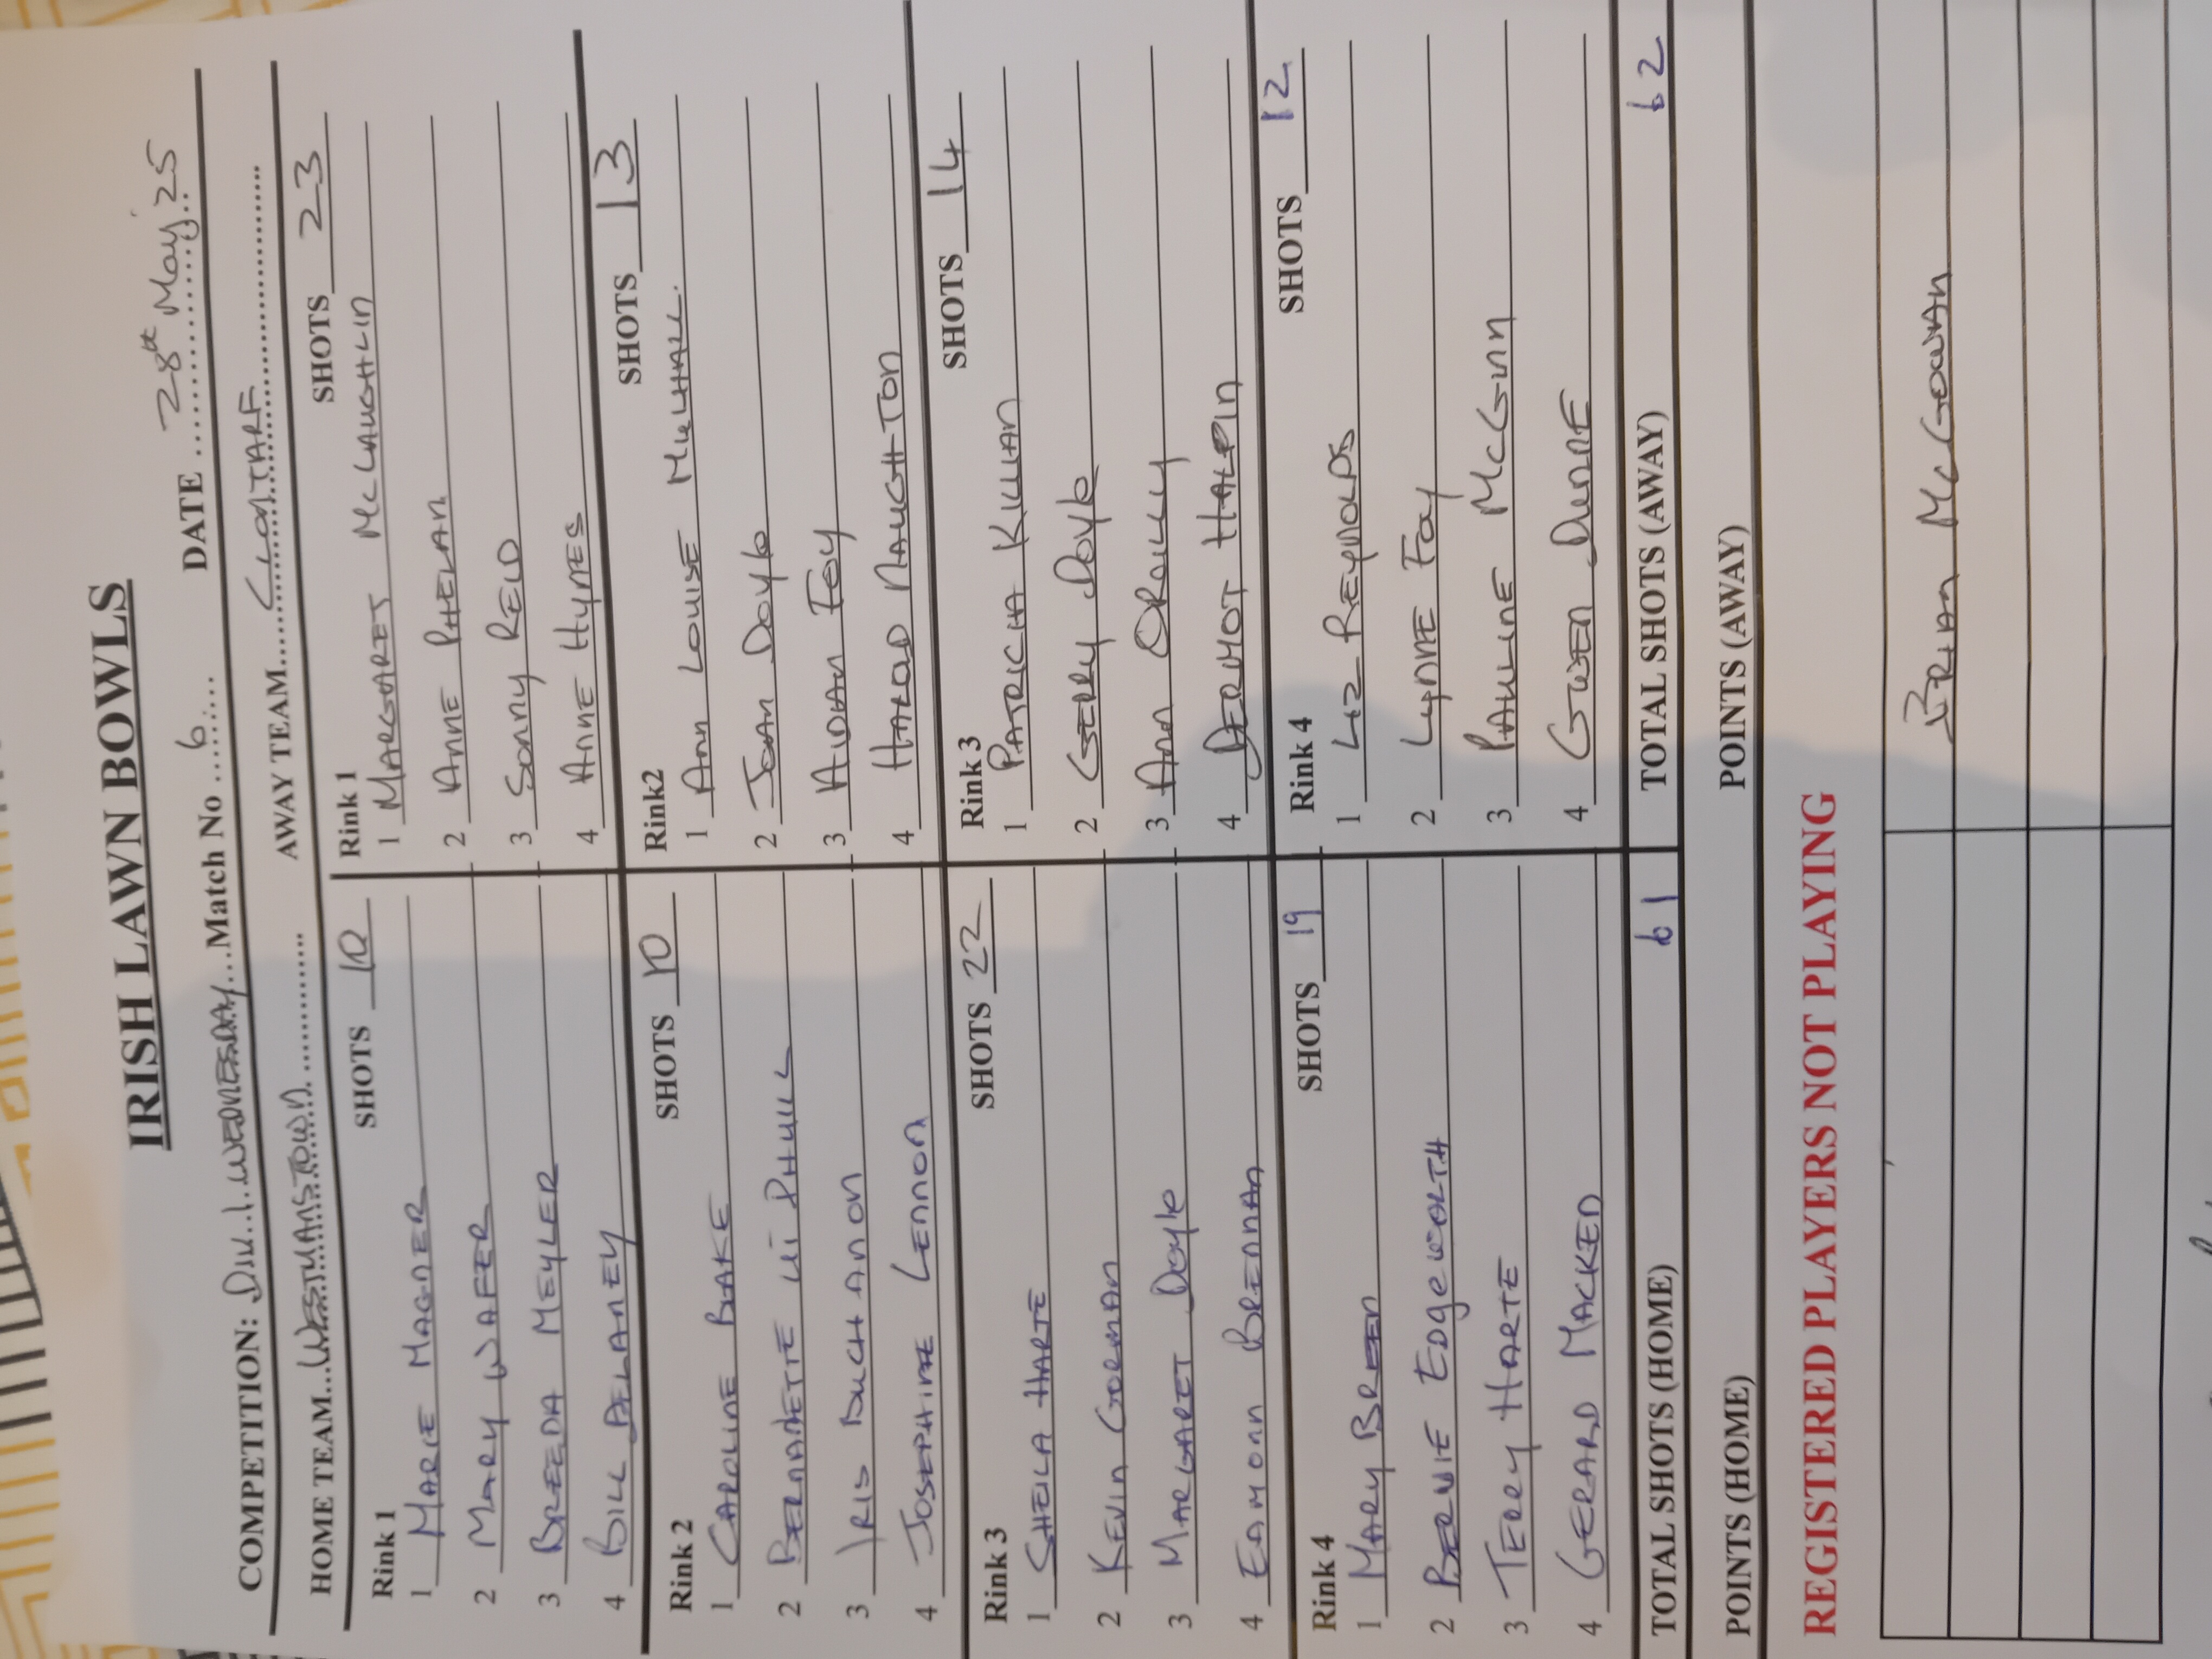 IRISH LAWN BOWLS
COMPETITION: Div. 1. WEDNESDAY...Match No 6...... DATE 28th May '25
HOME TEAM...WESTMANSTOWN............ AWAY TEAM....CLONTARF............
Rink 1 SHOTS 10
1 MARIE MAGNER
2 MARY WAFER
3 BREEDA MEYLER
4 BILL DELANEY
Rink 1 SHOTS 23
1 MARGARET McLAUGHLIN
2 ANNE PHELAN
3 SONNY REID
4 ANNE HYNES
Rink 2 SHOTS 10
1 CAROLINE BAKE
2 BERNADETTE UI PHUILL
3 YRIS BUCHANON
4 JOSEPHINE LENNON
Rink2 SHOTS 13
1 ANN LOUISE MULHALL.
2 JOAN DOYLE
3 AIDAN FOY
4 HAROLD NAUGHTON
Rink 3 SHOTS 22
1 SHEILA HARTE
2 KEVIN GORMAN
3 MARGARET DOYLE
4 EAMONN BRENNAN
Rink 3 SHOTS 14
1 PATRICIA KILLIAN
2 GERRY DOYLE
3 ANN OREILLY
4 DERMOT HALPIN
Rink 4 SHOTS 19
1 MARY BREEN
2 BERNIE EDGEWORTH
3 TERRY HARTE
4 GERARD MACKEN
Rink 4 SHOTS 12
1 LIZ REYNOLDS
2 LYNNE FOY
3 PAULINE McGUNN
4 GWEN DUNNE
TOTAL SHOTS (HOME) 61 TOTAL SHOTS (AWAY) 62
POINTS (HOME) POINTS (AWAY)
REGISTERED PLAYERS NOT PLAYING
BRIAN McGOWAN